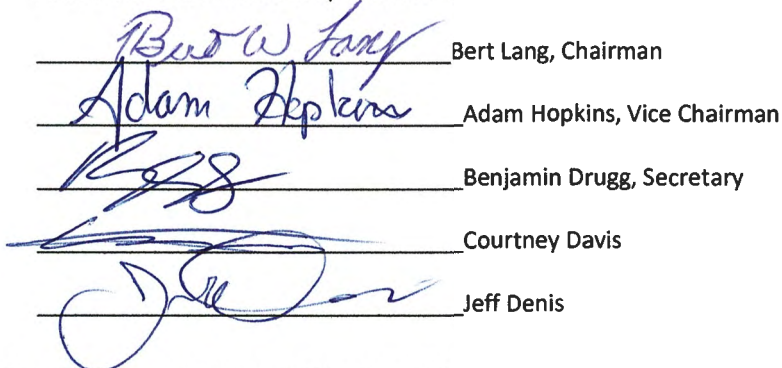 Bert W Lang Bert Lang, Chairman
Adam Hopkins Adam Hopkins, Vice Chairman
Benjamin Drugg, Secretary
Courtney Davis
Jeff Denis